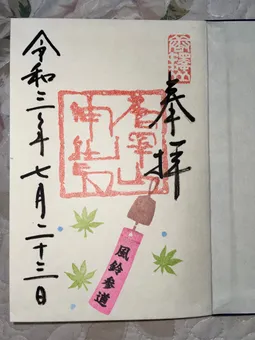 奉拝
風鈴参道
令和三年七月二十三日